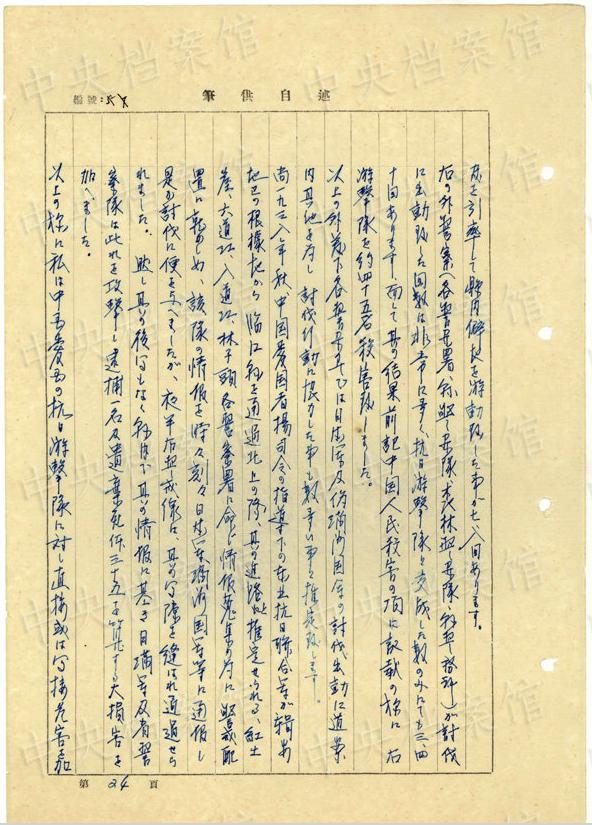 編號:
筆 供 自 述
を引率して県内僻地を游動致した事が七、八回あります。
右の外警察(各警察署、 森林警察隊、 )が討伐
に出動致した回数は非常に多く、抗日游擊隊と交戦した数のみにても三、四
十回あります、而して其の結果前記中国人民殺害の項に記載の様に右
游擊隊を約四十五名殺害致しました。
以上の外管下各警察署をして日本軍及偽満洲国軍の討伐出動に道案
内其他を為し討伐行動に協力した事も数多い事と推定致します。
尚一九三八年秋、中国愛国者楊司令の指導下の東北抗日聯合軍が輯安
地区の根據地から臨江縣を通過北上の際、其の進路と推定せられる、紅土
崖、大道江、八道江、林子頭各警察署に命じ情報蒐集の為に 配
置に就かしめ、該隊の情報を時々刻々日本軍在満洲国軍等に通報し
是が討伐に便を与へましたが、夜半右 戒線は其の間隙を縫はれ通過せら
れました。 其の後間もなく 其の情報に基き日満軍及省警
察隊は此れを攻擊し逮捕一名及遺棄死体三十五を算する大損害を
加へました。
以上の様に私は中国愛国の抗日游擊隊に対し直接或は间接危害を加
第 24 頁
中央档案馆